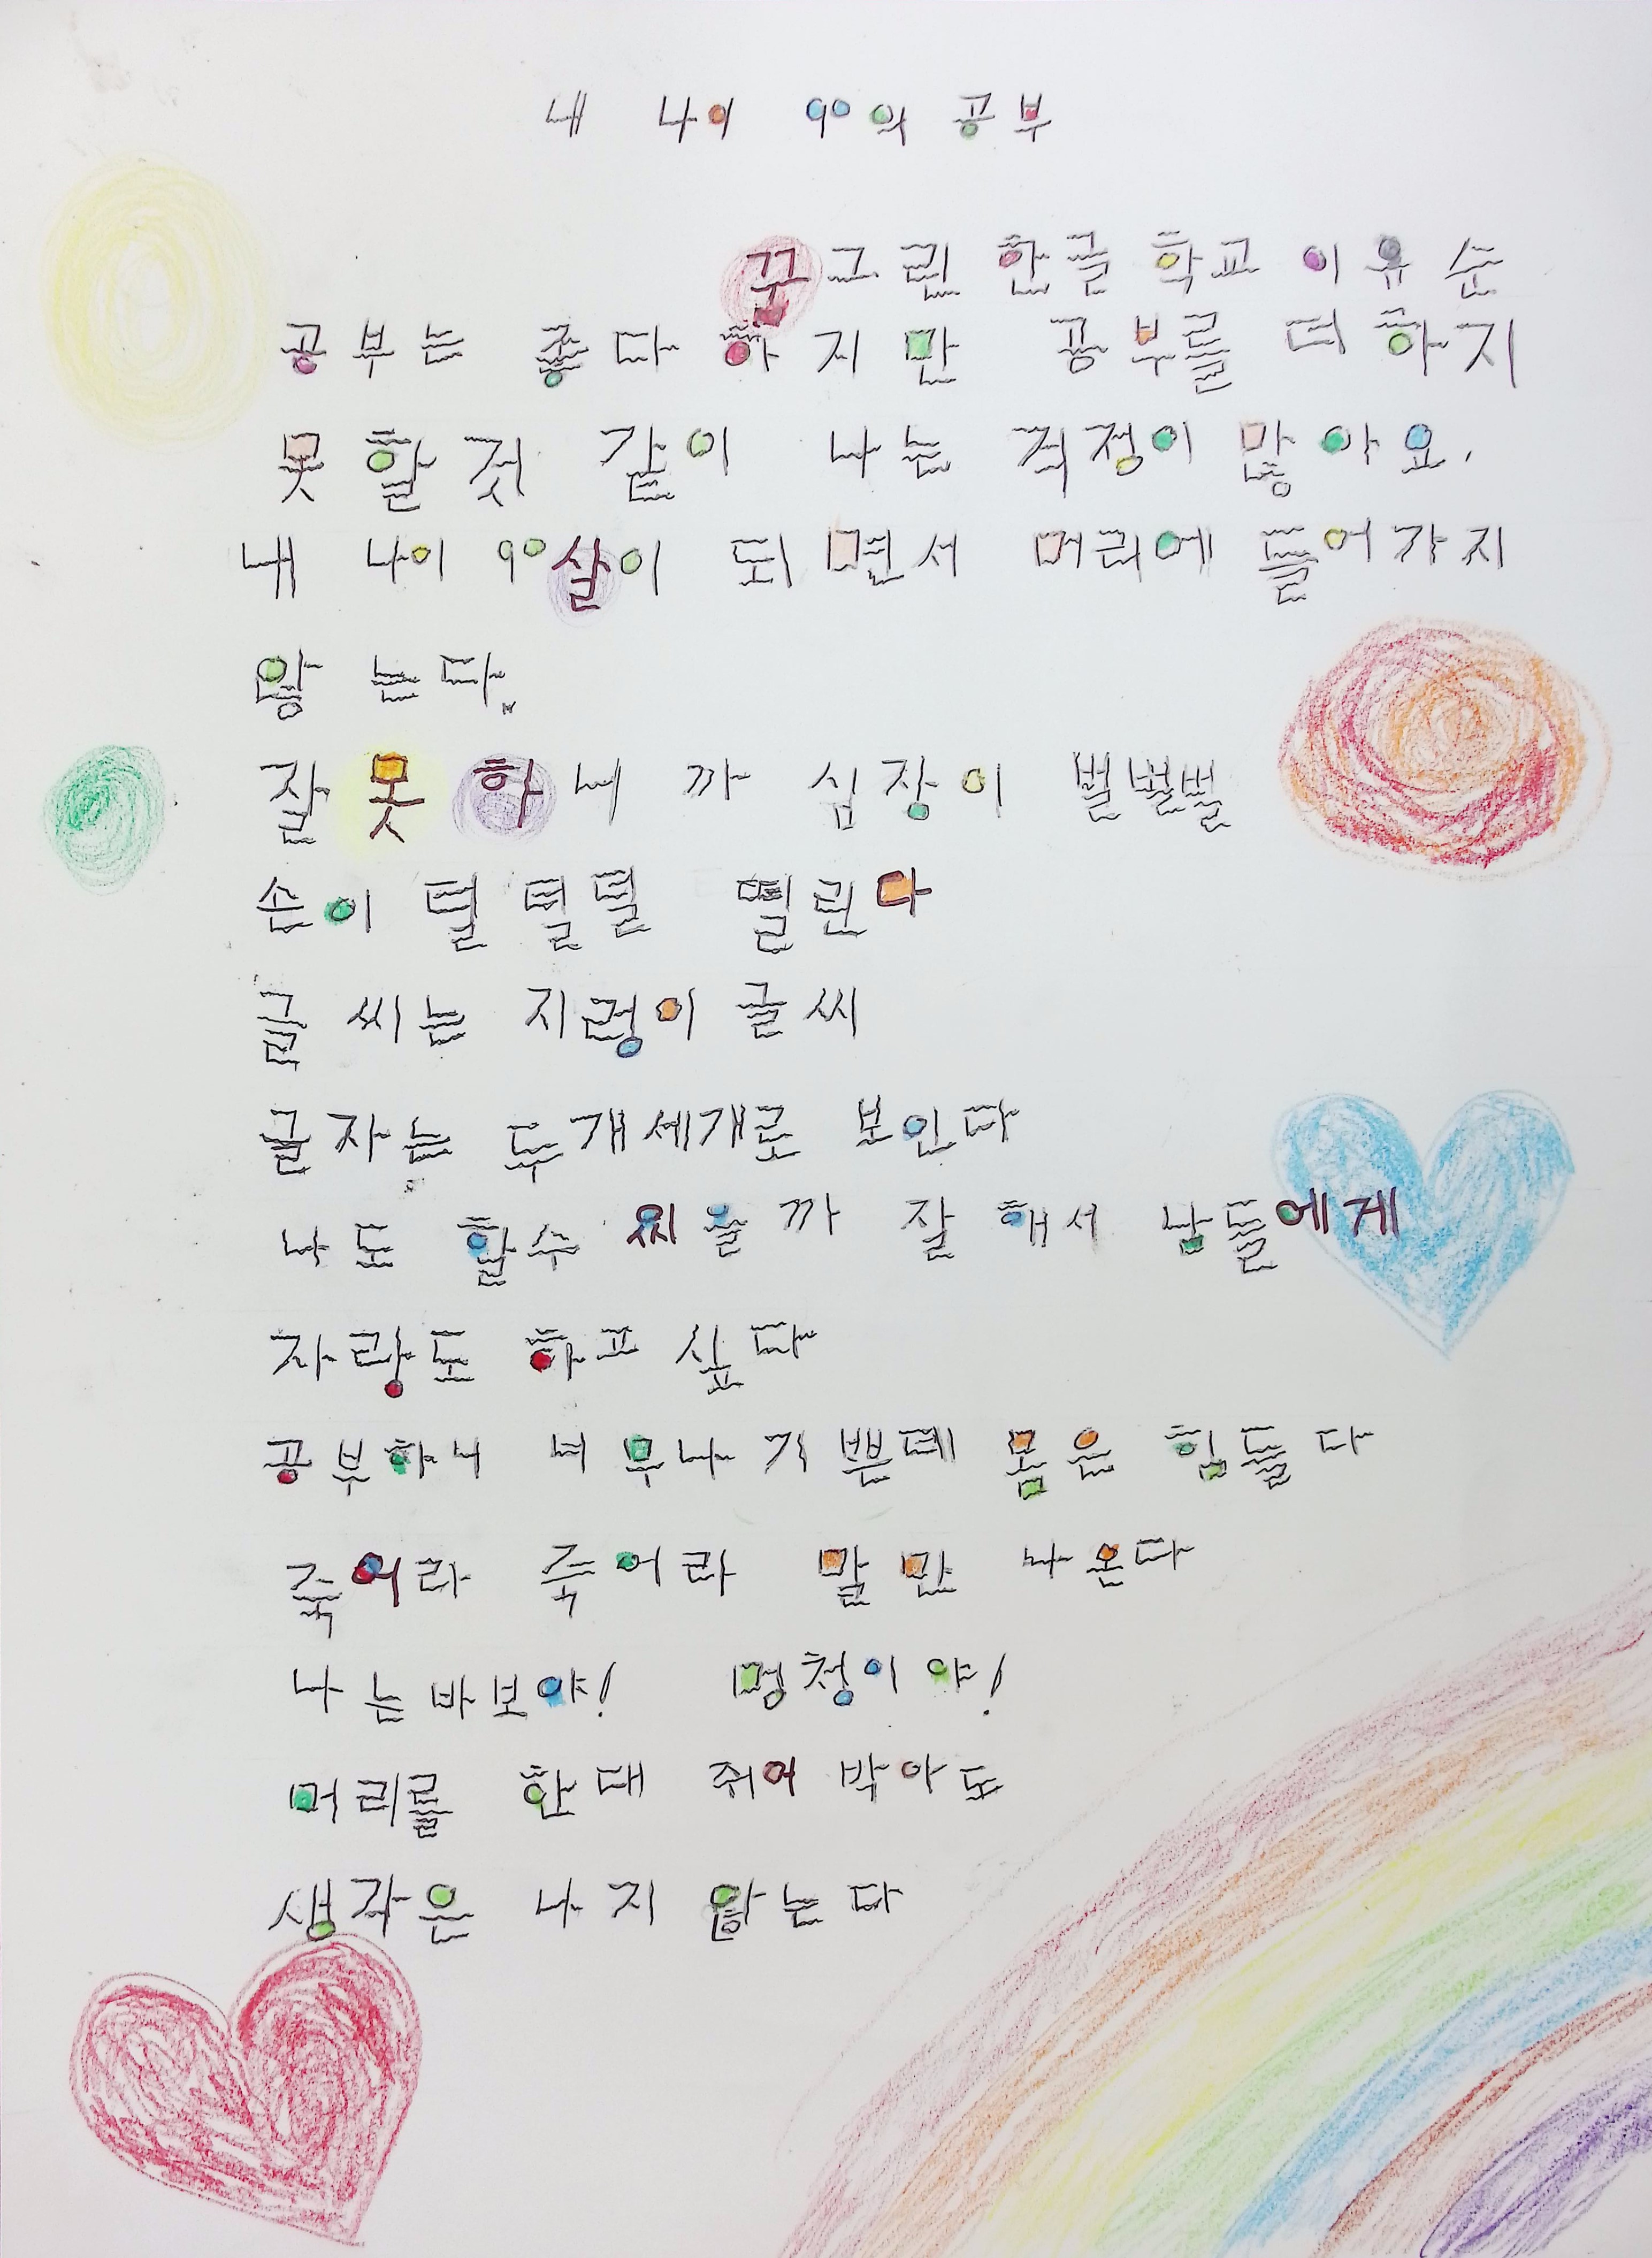 내 나이 90의 공부
꾸그린 한글 학교 이유순
공부는 좋다 하지만 공부를 더 하지
못할것 같이 나는 걱정이 많아요.
내 나이 90살이 되면서 머리에 들어가지
않는다.
잘못하니까 심장이 벌벌벌
손이 덜덜덜 떨린다
글씨는 지렁이 글씨
글자는 두개세개로 보인다
나도 할수 있을까 잘해서 남들에게
자랑도 하고 싶다
공부하니 너무나 기쁜데 몸은 힘들다
죽어라 죽어라 말만 나온다
나는바보야! 멍청이야!
머리를 한대 쥐어 박아도
생각은 나지 않는다